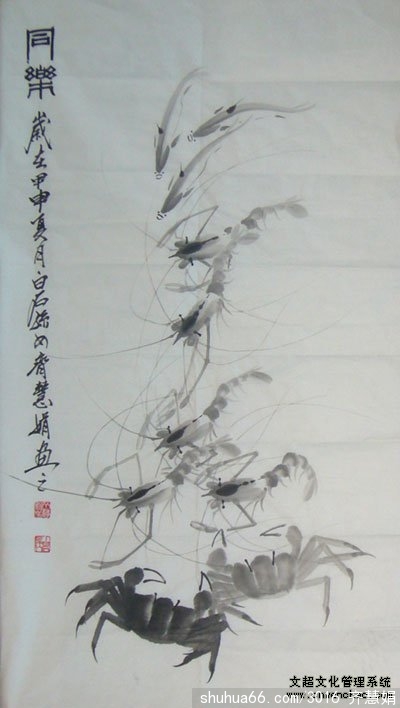 同樂
歲在甲申夏月白石孫女齊慧娟画之
文超文化管理系统
shuhua66.com/3016 齐慧娟